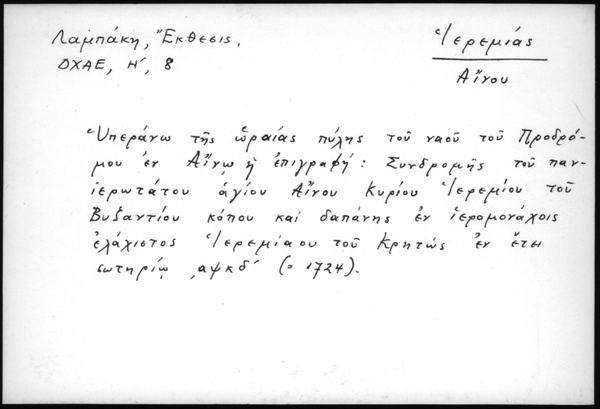 Λαμπάκη, Ἔκθεσις,
ΔΧΑΕ, Η΄, 8
Ἱερεμίας
Αἴνου
Ὑπεράνω τῆς ὡραίας πύλης τοῦ ναοῦ τοῦ Προδρό-
μου ἐν Αἴνῳ ἡ ἐπιγραφή: Συνδρομῆς τοῦ παν-
ιερωτάτου ἁγίου Αἴνου Κυρίου Ἱερεμίου τοῦ
Βυζαντίου κόπου καὶ δαπάνης ἐν ἱερομονάχοις
ἐλάχιστος Ἱερεμίαου τοῦ Κρητὼς ἐν ἔτει
σωτηρίῳ ͵αψκδ΄ (= 1724).